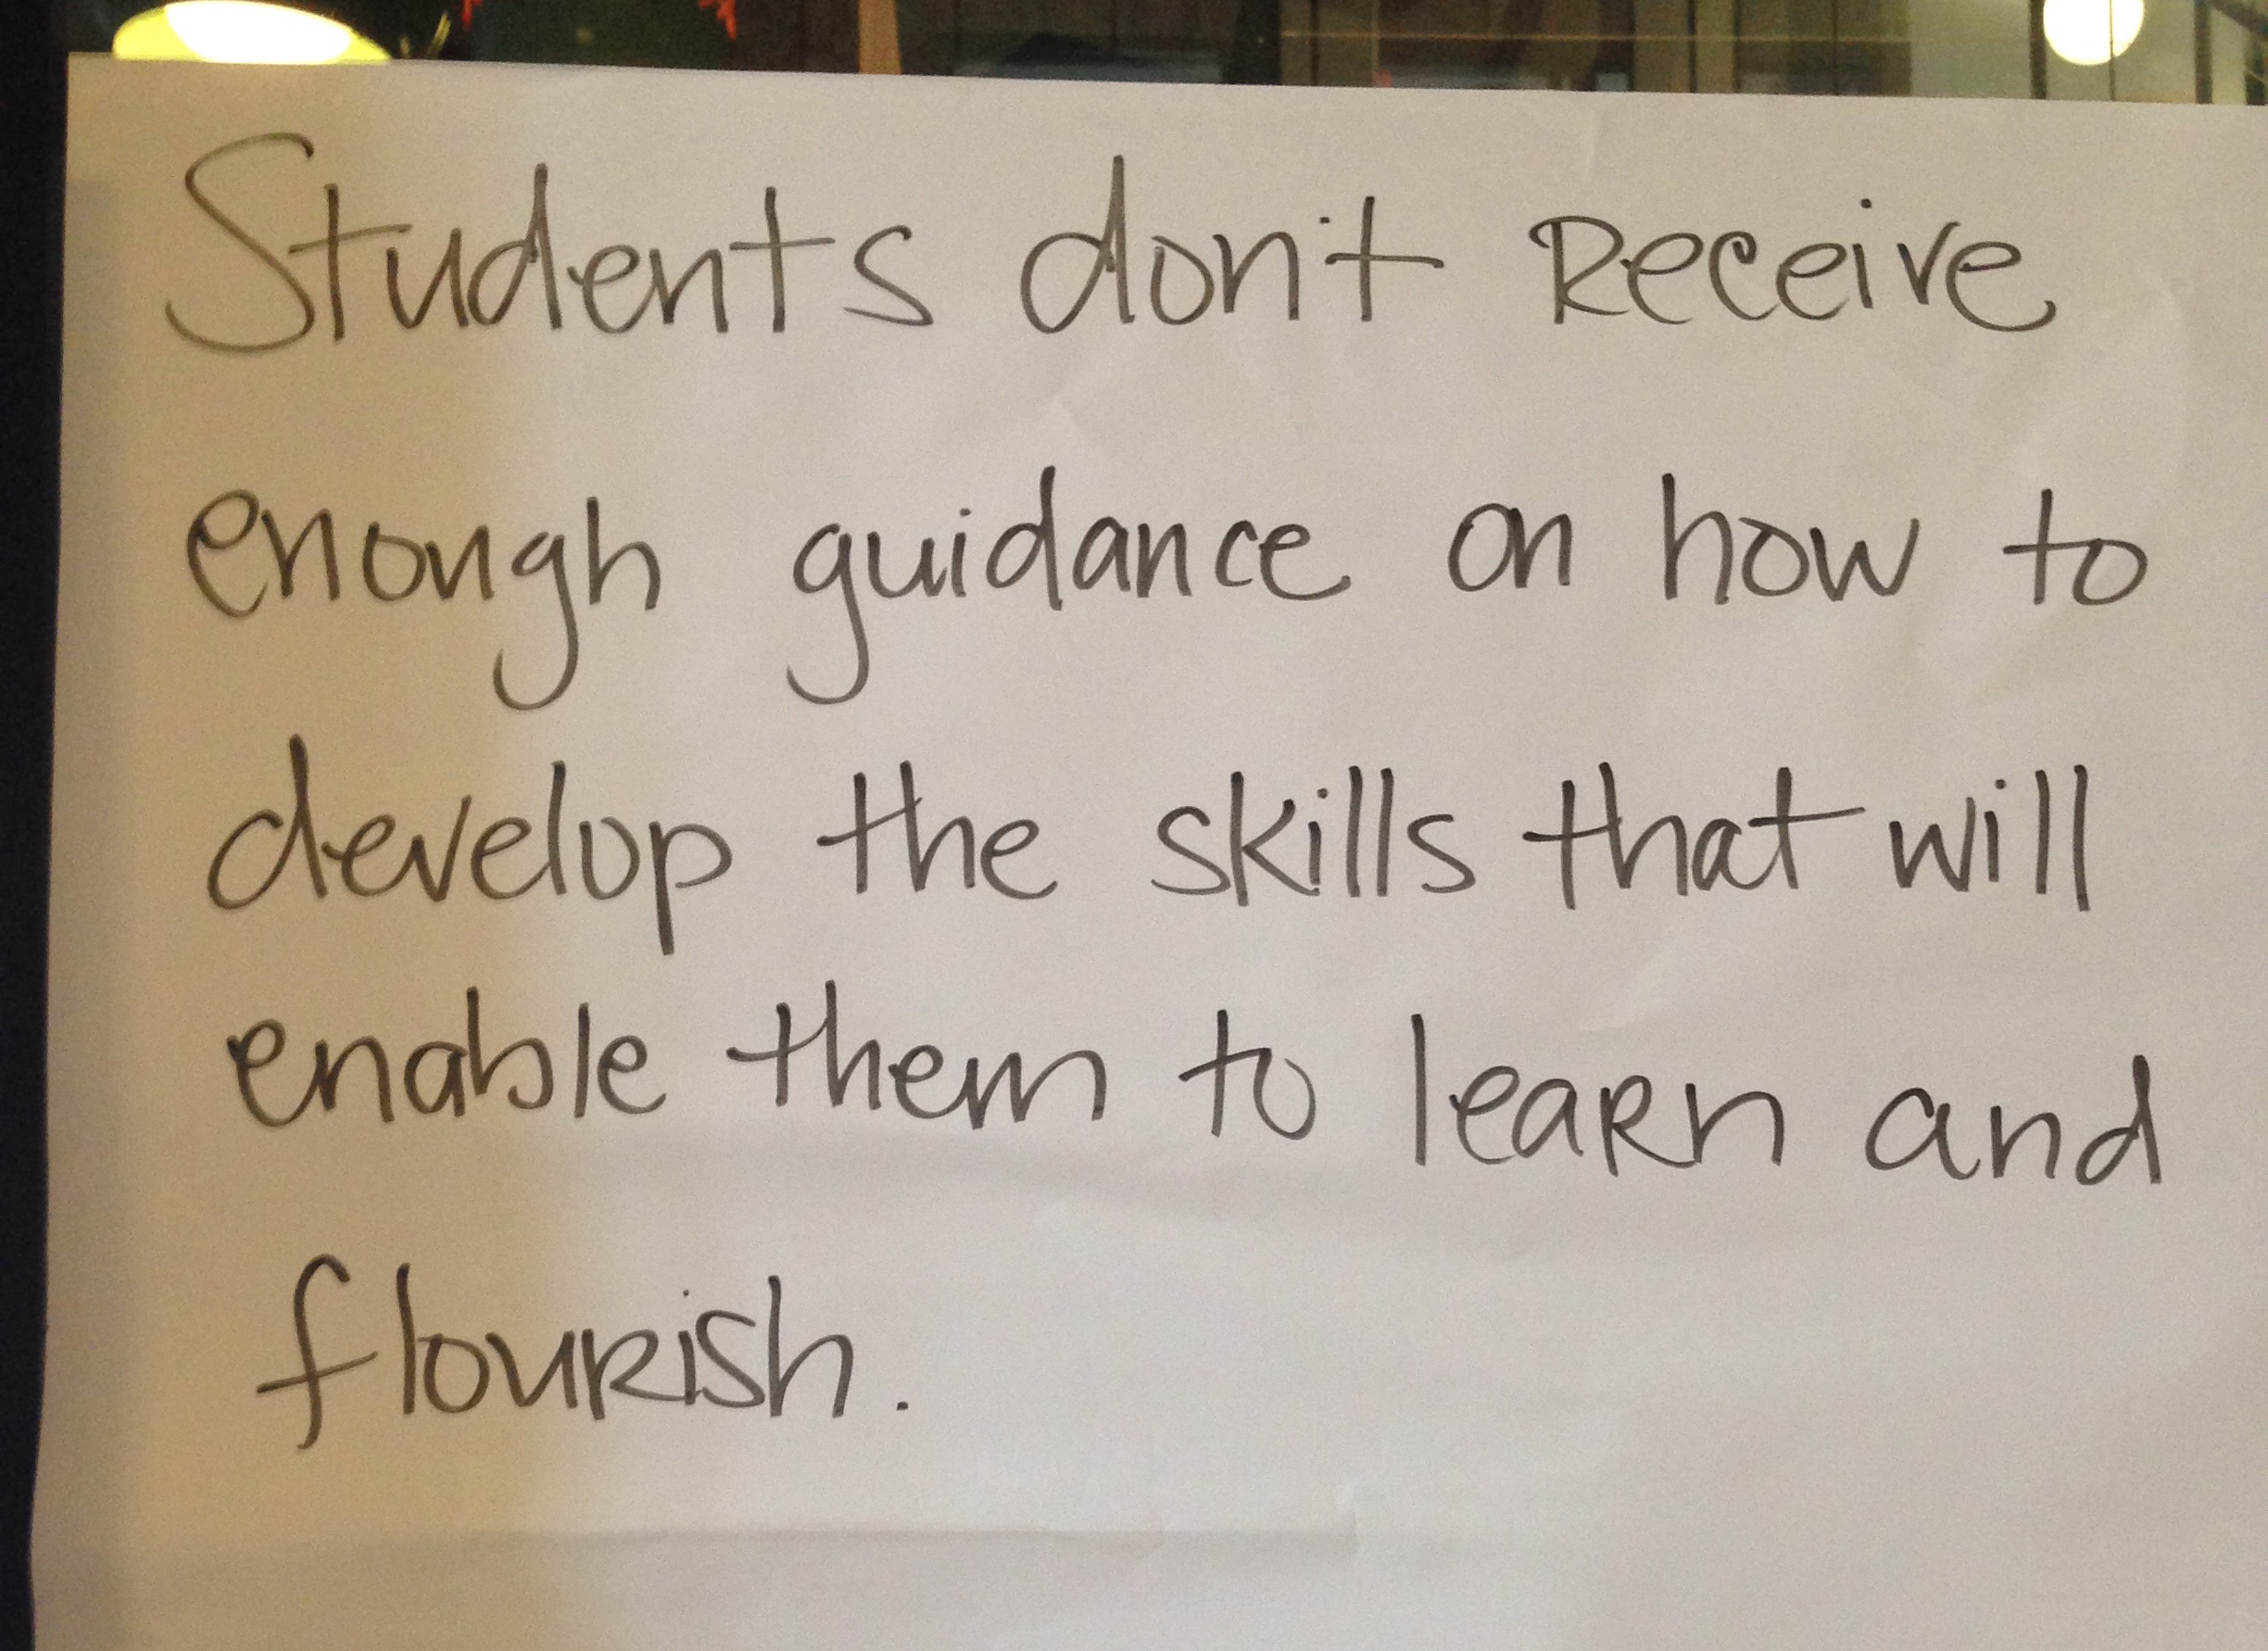 Students don't Receive
enough guidance on how to
develop the skills that will
enable them to leaRn and
flouRish.